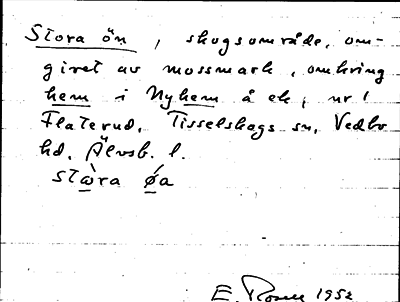 Stora ön, skogsområde, om-
givet av mossmark, omkring
hem i Nyhem å ek, nr 1
Flaterud. Tisselskogs sn, Vedbo
hd, Älvsb. l.
stæ̀ra øa
E. Rosell 1952